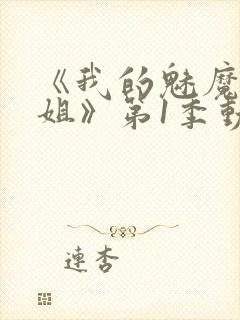 《我的魅魔
姐》第1季動
連杏